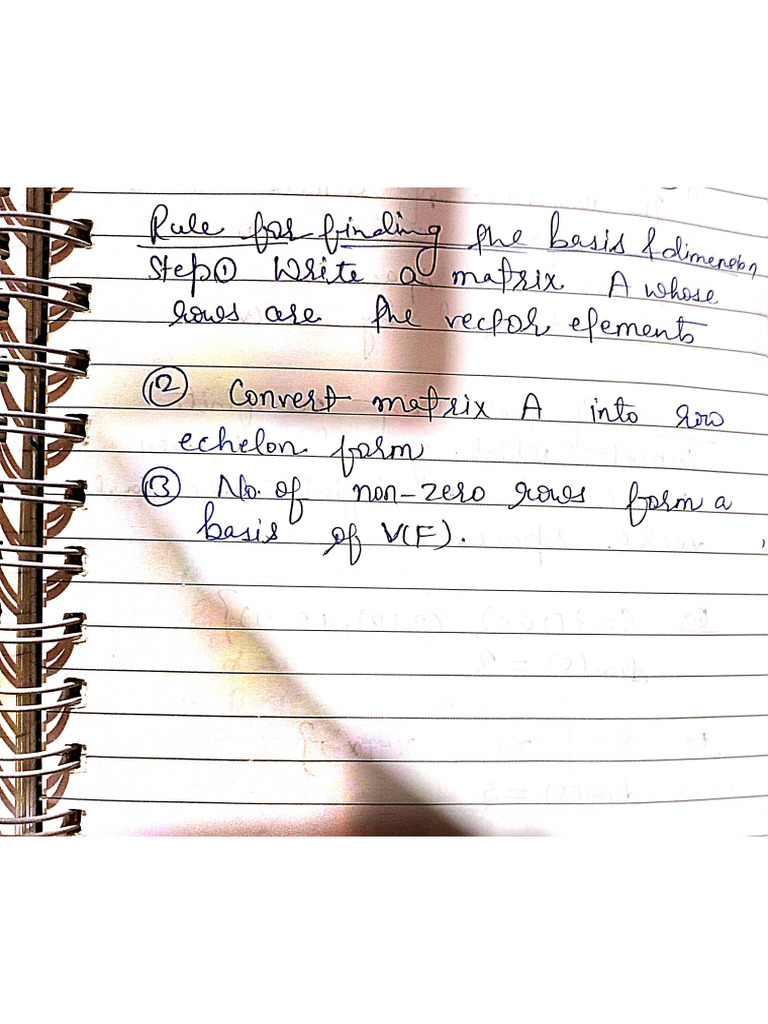 Rule for finding the basis & dimension
Step ① Write a matrix A whose
rows are the vector elements
② Convert matrix A into row
echelon form
③ No. of non-zero rows form a
basis of V(F).